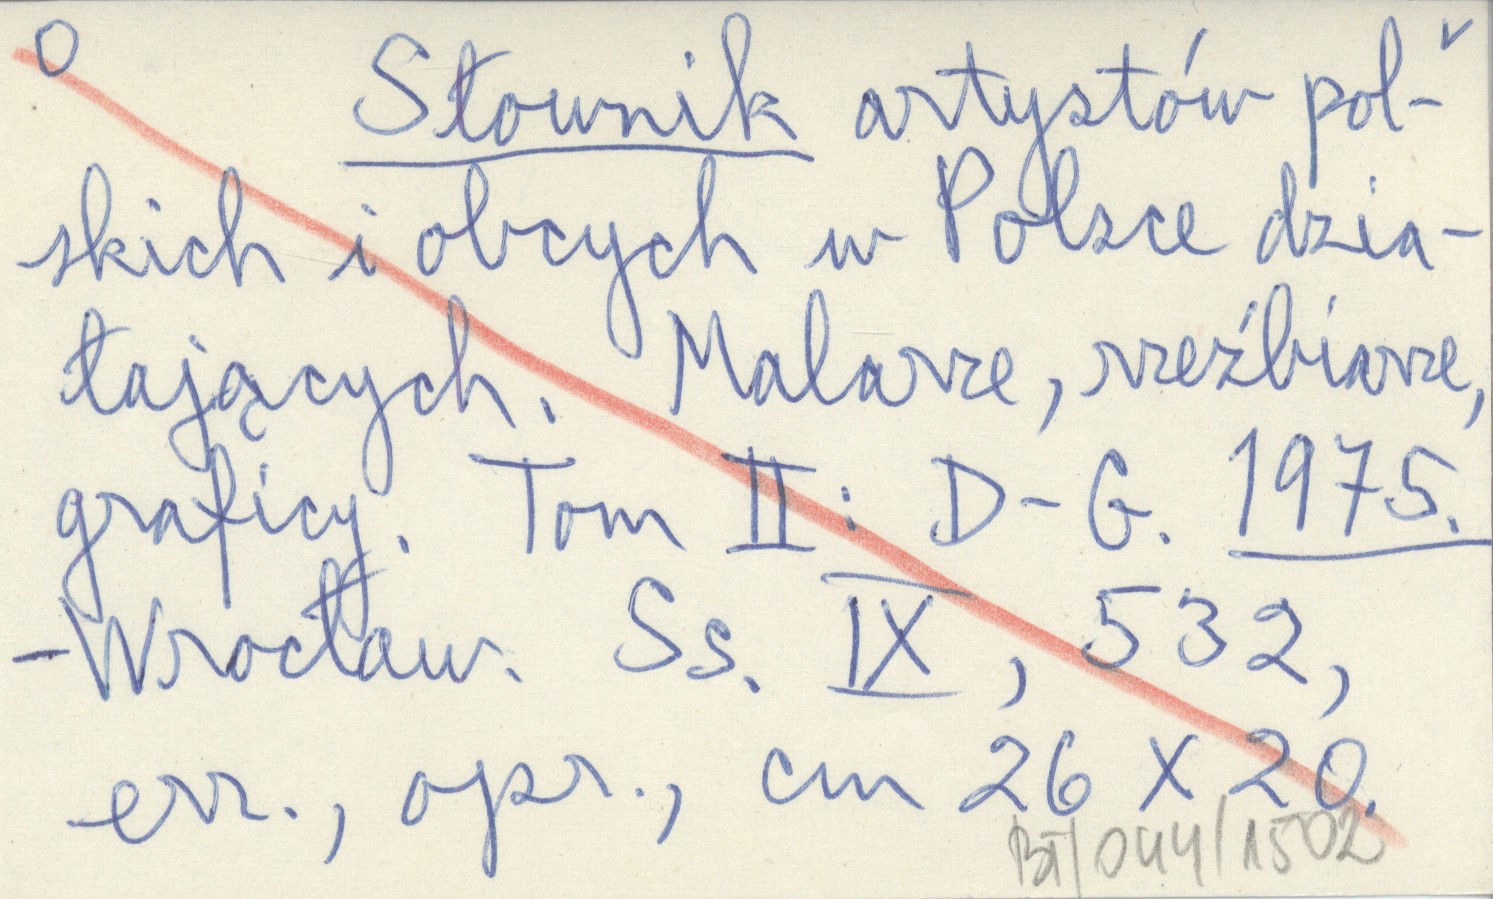 O Słownik artystów pol-
skich i obcych w Polsce dzia-
łających. Malarze, rzeźbiarze,
graficy. Tom II: D-G. 1975.
-Wrocław. Ss. IX, 532,
err., opr., cm 26 x 20.
BT/044/1502